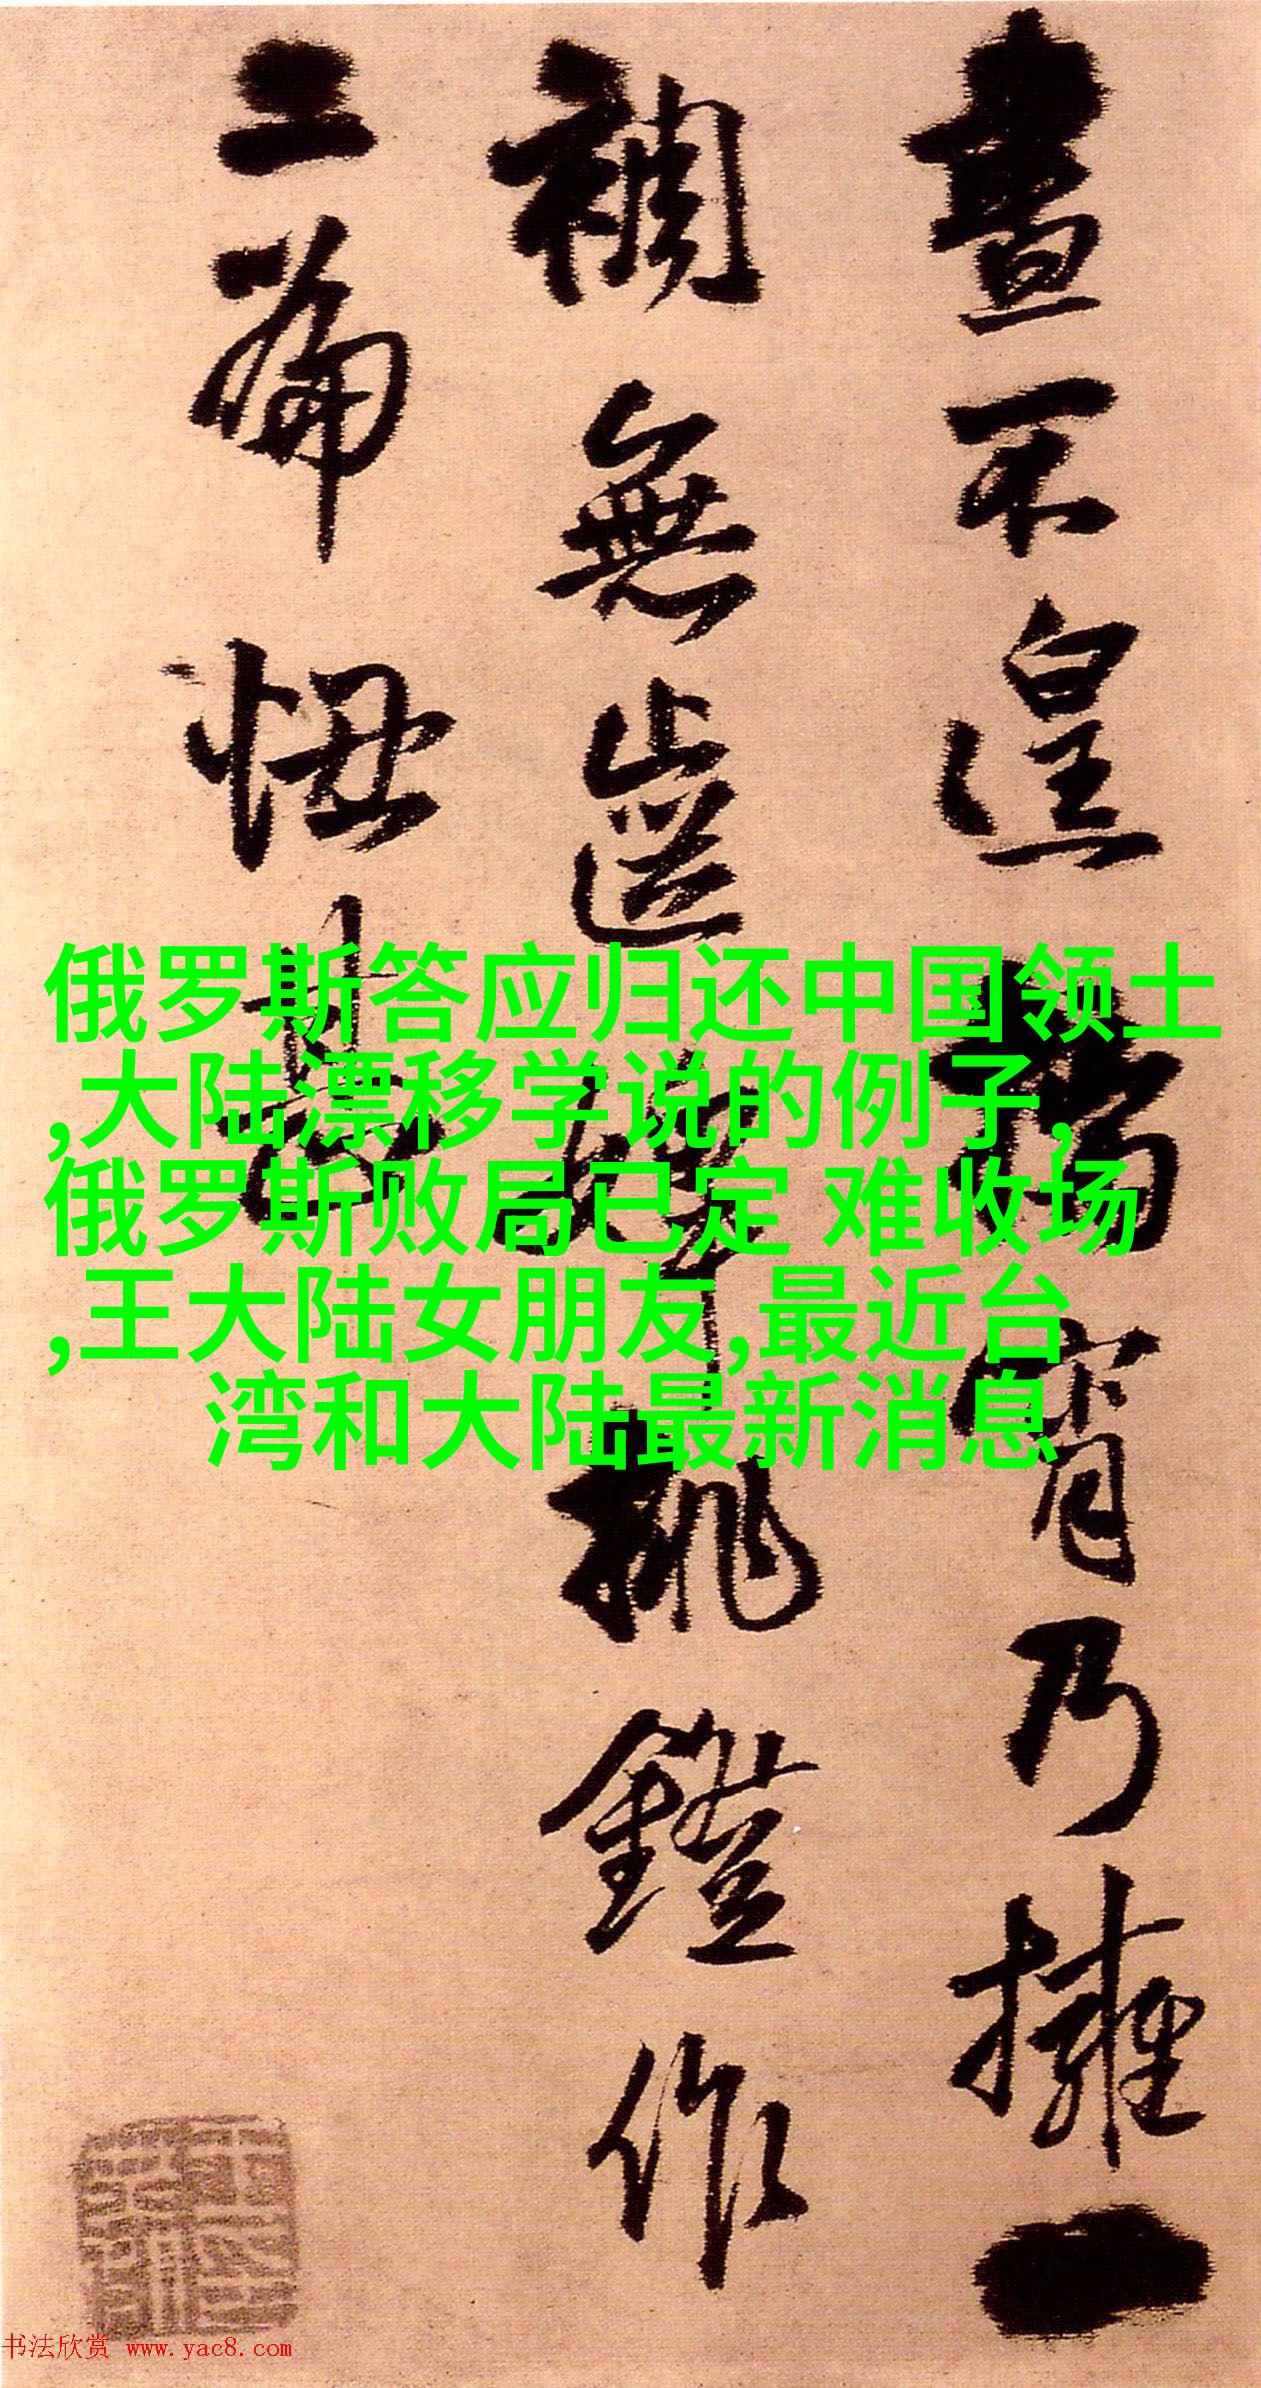 晝不遑宵乃擁一
裯無婢挑鐙作
篇甚
俄罗斯答应归还中国领土
,大陆漂移学说的例子,
俄罗斯败局已定 难收场
,王大陆女朋友,最近台
湾和大陆最新消息
书法欣赏 www.yac8.com